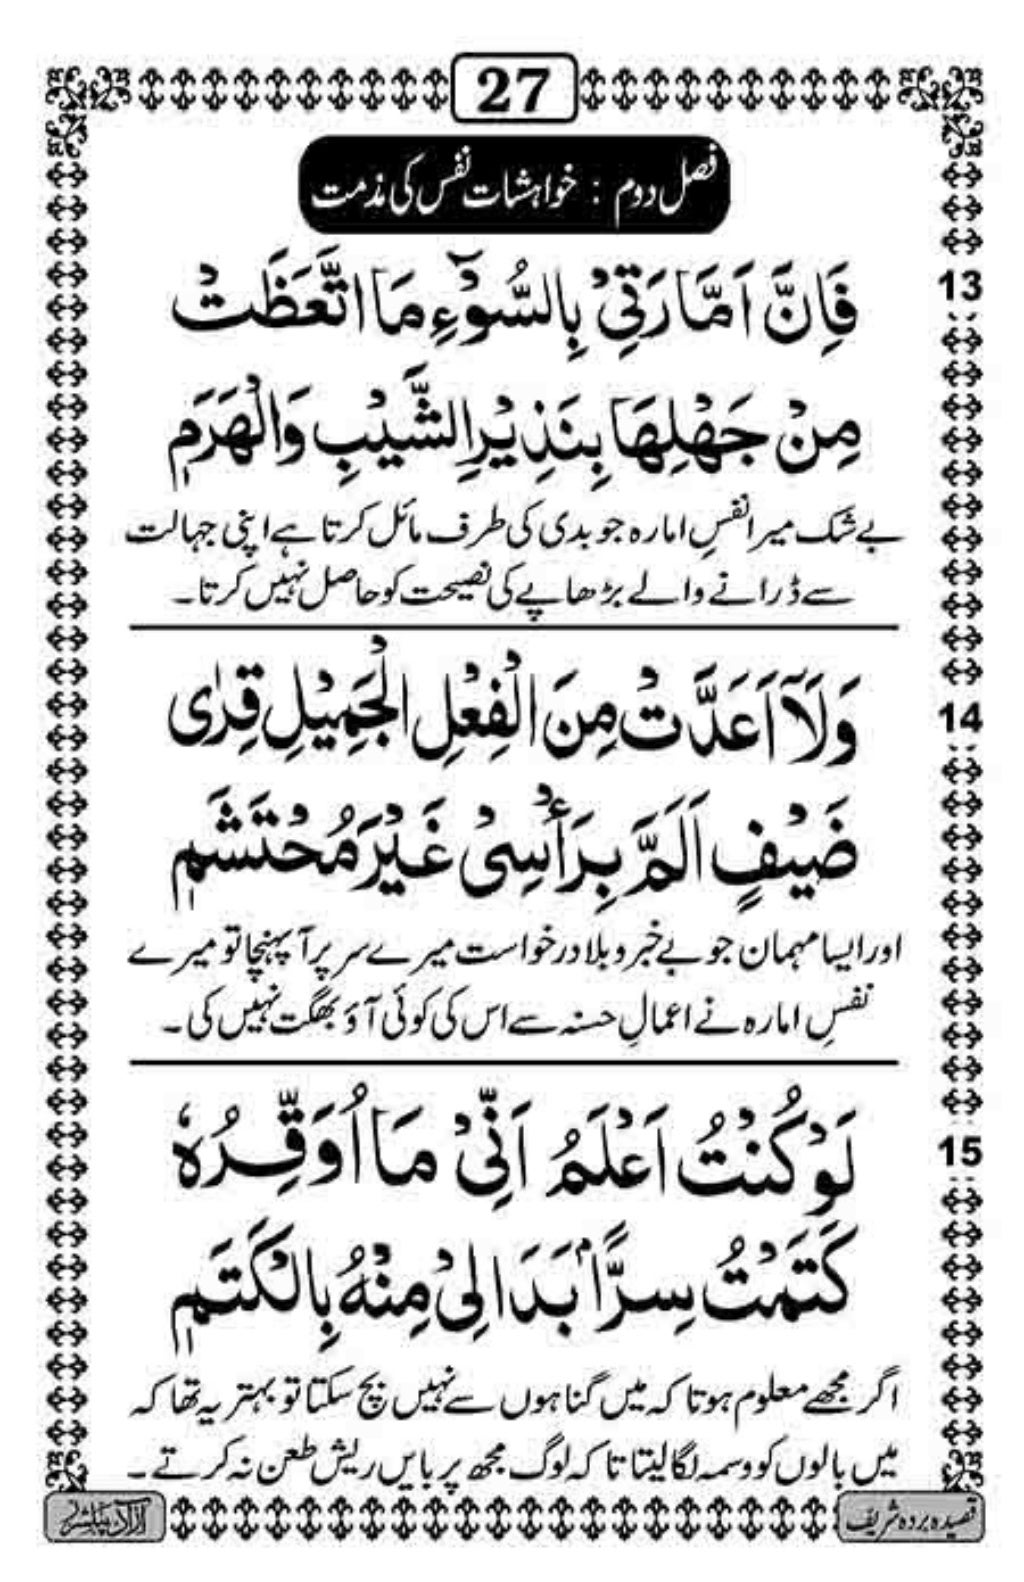 27
فصل دوم : خواہشات نفس کی مذمت
13
فَاِنَّ اَمَّارَتِیْ بِالسُّوْٓءِ مَا اتَّعَظَتْ
مِنْ جَهْلِهَا بِنَذِیْرِ الشَّیْبِ وَالْهَرَمِ
بے شک میرا نفسِ امارہ جو بدی کی طرف مائل کرتا ہے اپنی جہالت
سے ڈرانے والے بڑھاپے کی نصیحت کو حاصل نہیں کرتا۔
14
وَلَآ اَعَدَّتْ مِنَ الْفِعْلِ الْجَمِیْلِ قِرٰی
ضَیْفٍ اَلَمَّ بِرَأْسِیْ غَیْرَ مُحْتَشَمِ
اور ایسا مہمان جو بے خبر و بلا درخواست میرے سر پر آ پہنچا تو میرے
نفسِ امارہ نے اعمالِ حسنہ سے اس کی کوئی آؤ بھگت نہیں کی ۔
15
لَوْ کُنْتُ اَعْلَمُ اَنِّیْ مَا اُوَقِّرُهٗ
کَتَمْتُ سِرًّا ۢ بَدَا لِیْ مِنْهُ بِالْکَتَمِ
اگر مجھے معلوم ہوتا کہ میں گناہوں سے نہیں بچ سکتا تو بہتر یہ تھا کہ
میں بالوں کو وسمہ لگا لیتا تا کہ لوگ مجھ پر بایں ریش طعن نہ کرتے ۔
قصیدہ بردہ شریف
آزاد پبلشرز